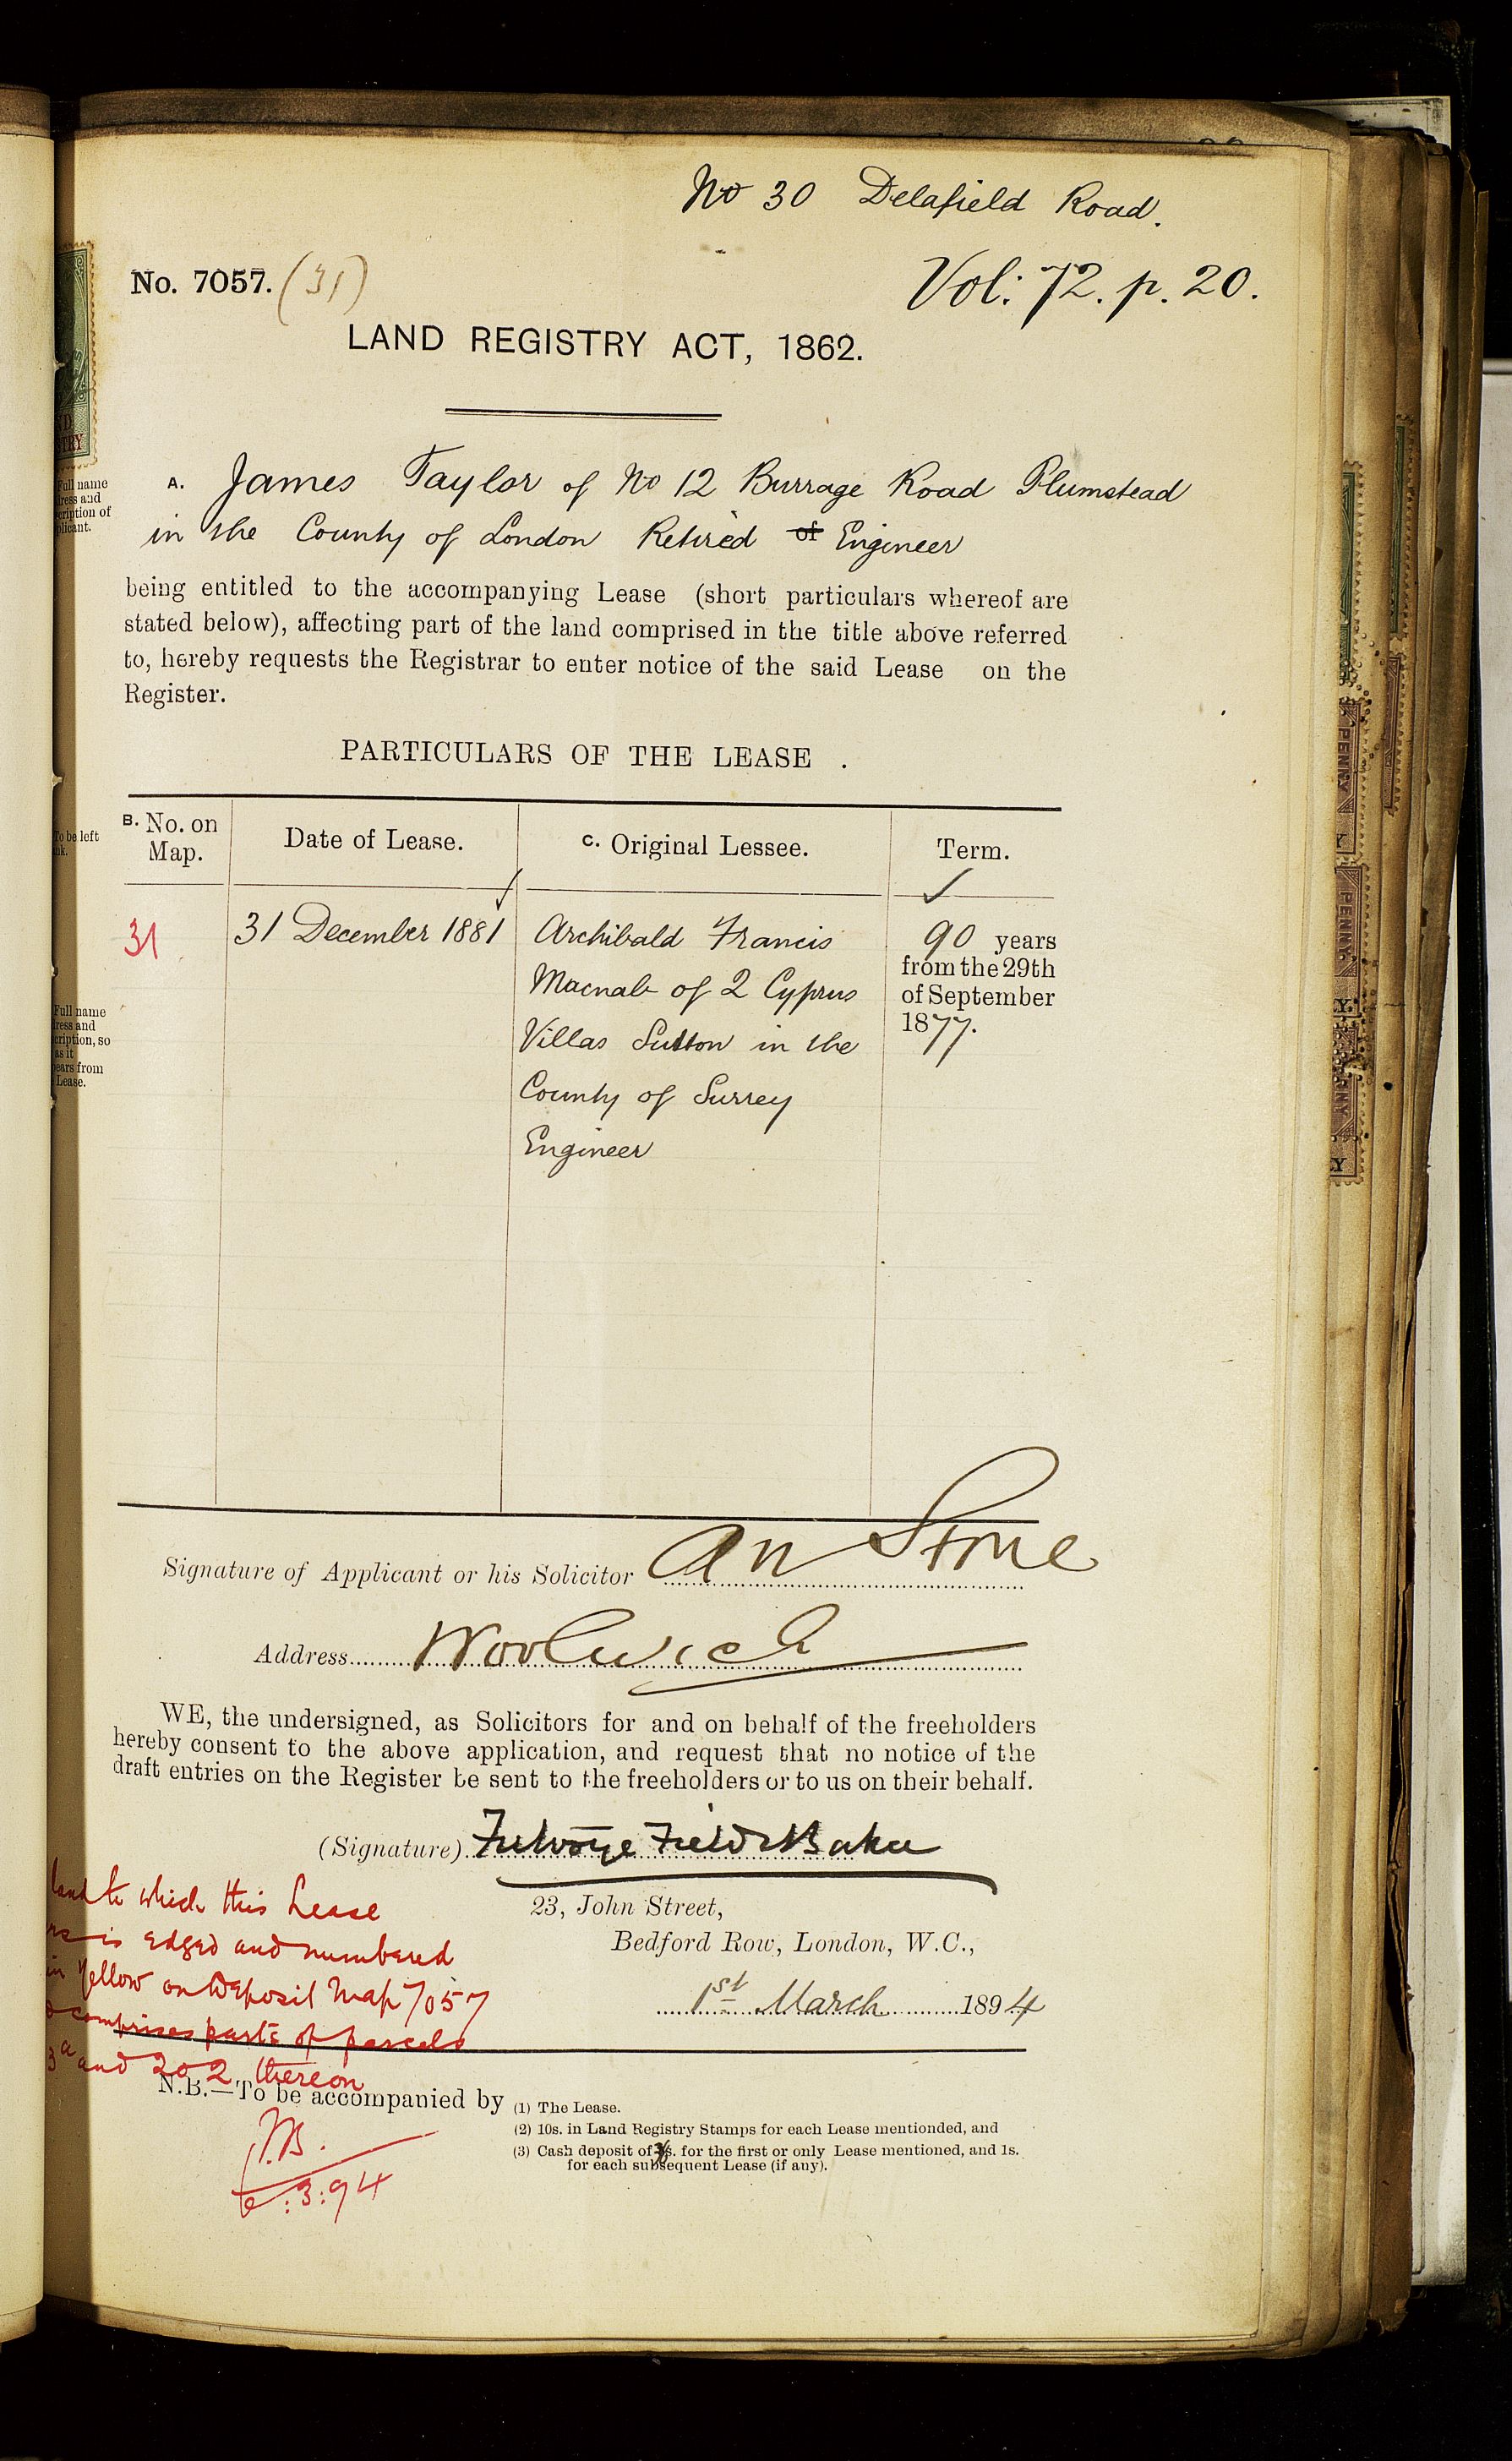 No 30 Delafield Road.
No. 7057. (31)
Vol: 72. p. 20.
LAND REGISTRY ACT, 1862.
Full name
dress and
cription of
plicant.
A. James Taylor of No 12 Burrage Road Plumstead
in the County of London Retired of Engineer
being entitled to the accompanying Lease (short particulars whereof are
stated below), affecting part of the land comprised in the title above referred
to, hereby requests the Registrar to enter notice of the said Lease on the
Register.
PARTICULARS OF THE LEASE .
To be left
nk.
B. No. on
Map.
Date of Lease.
C. Original Lessee.
Term.
31
31 December 1881
Archibald Francis
Macnab of 2 Cyprus
Villas Sutton in the
County of Surrey
Engineer
90 years
from the 29th
of September
1877.
Full name
ress and
cription, so
as it
ears from
Lease.
Signature of Applicant or his Solicitor A N Stone
Address Woolwich
WE, the undersigned, as Solicitors for and on behalf of the freeholders
hereby consent to the above application, and request that no notice of the
draft entries on the Register be sent to the freeholders or to us on their behalf.
(Signature) Field & Baker
23, John Street,
Bedford Row, London, W.C.,
1st March 1894
land to which this Lease
is edged and numbered
in Yellow on Deposit Map 7057
comprises parts of parcels
3a and 202 thereon
6:3:94
N.B.—To be accompanied by
(1) The Lease.
(2) 10s. in Land Registry Stamps for each Lease mentionded, and
(3) Cash deposit of s. for the first or only Lease mentioned, and 1s.
for each subsequent Lease (if any).
PENNY
PENNY.